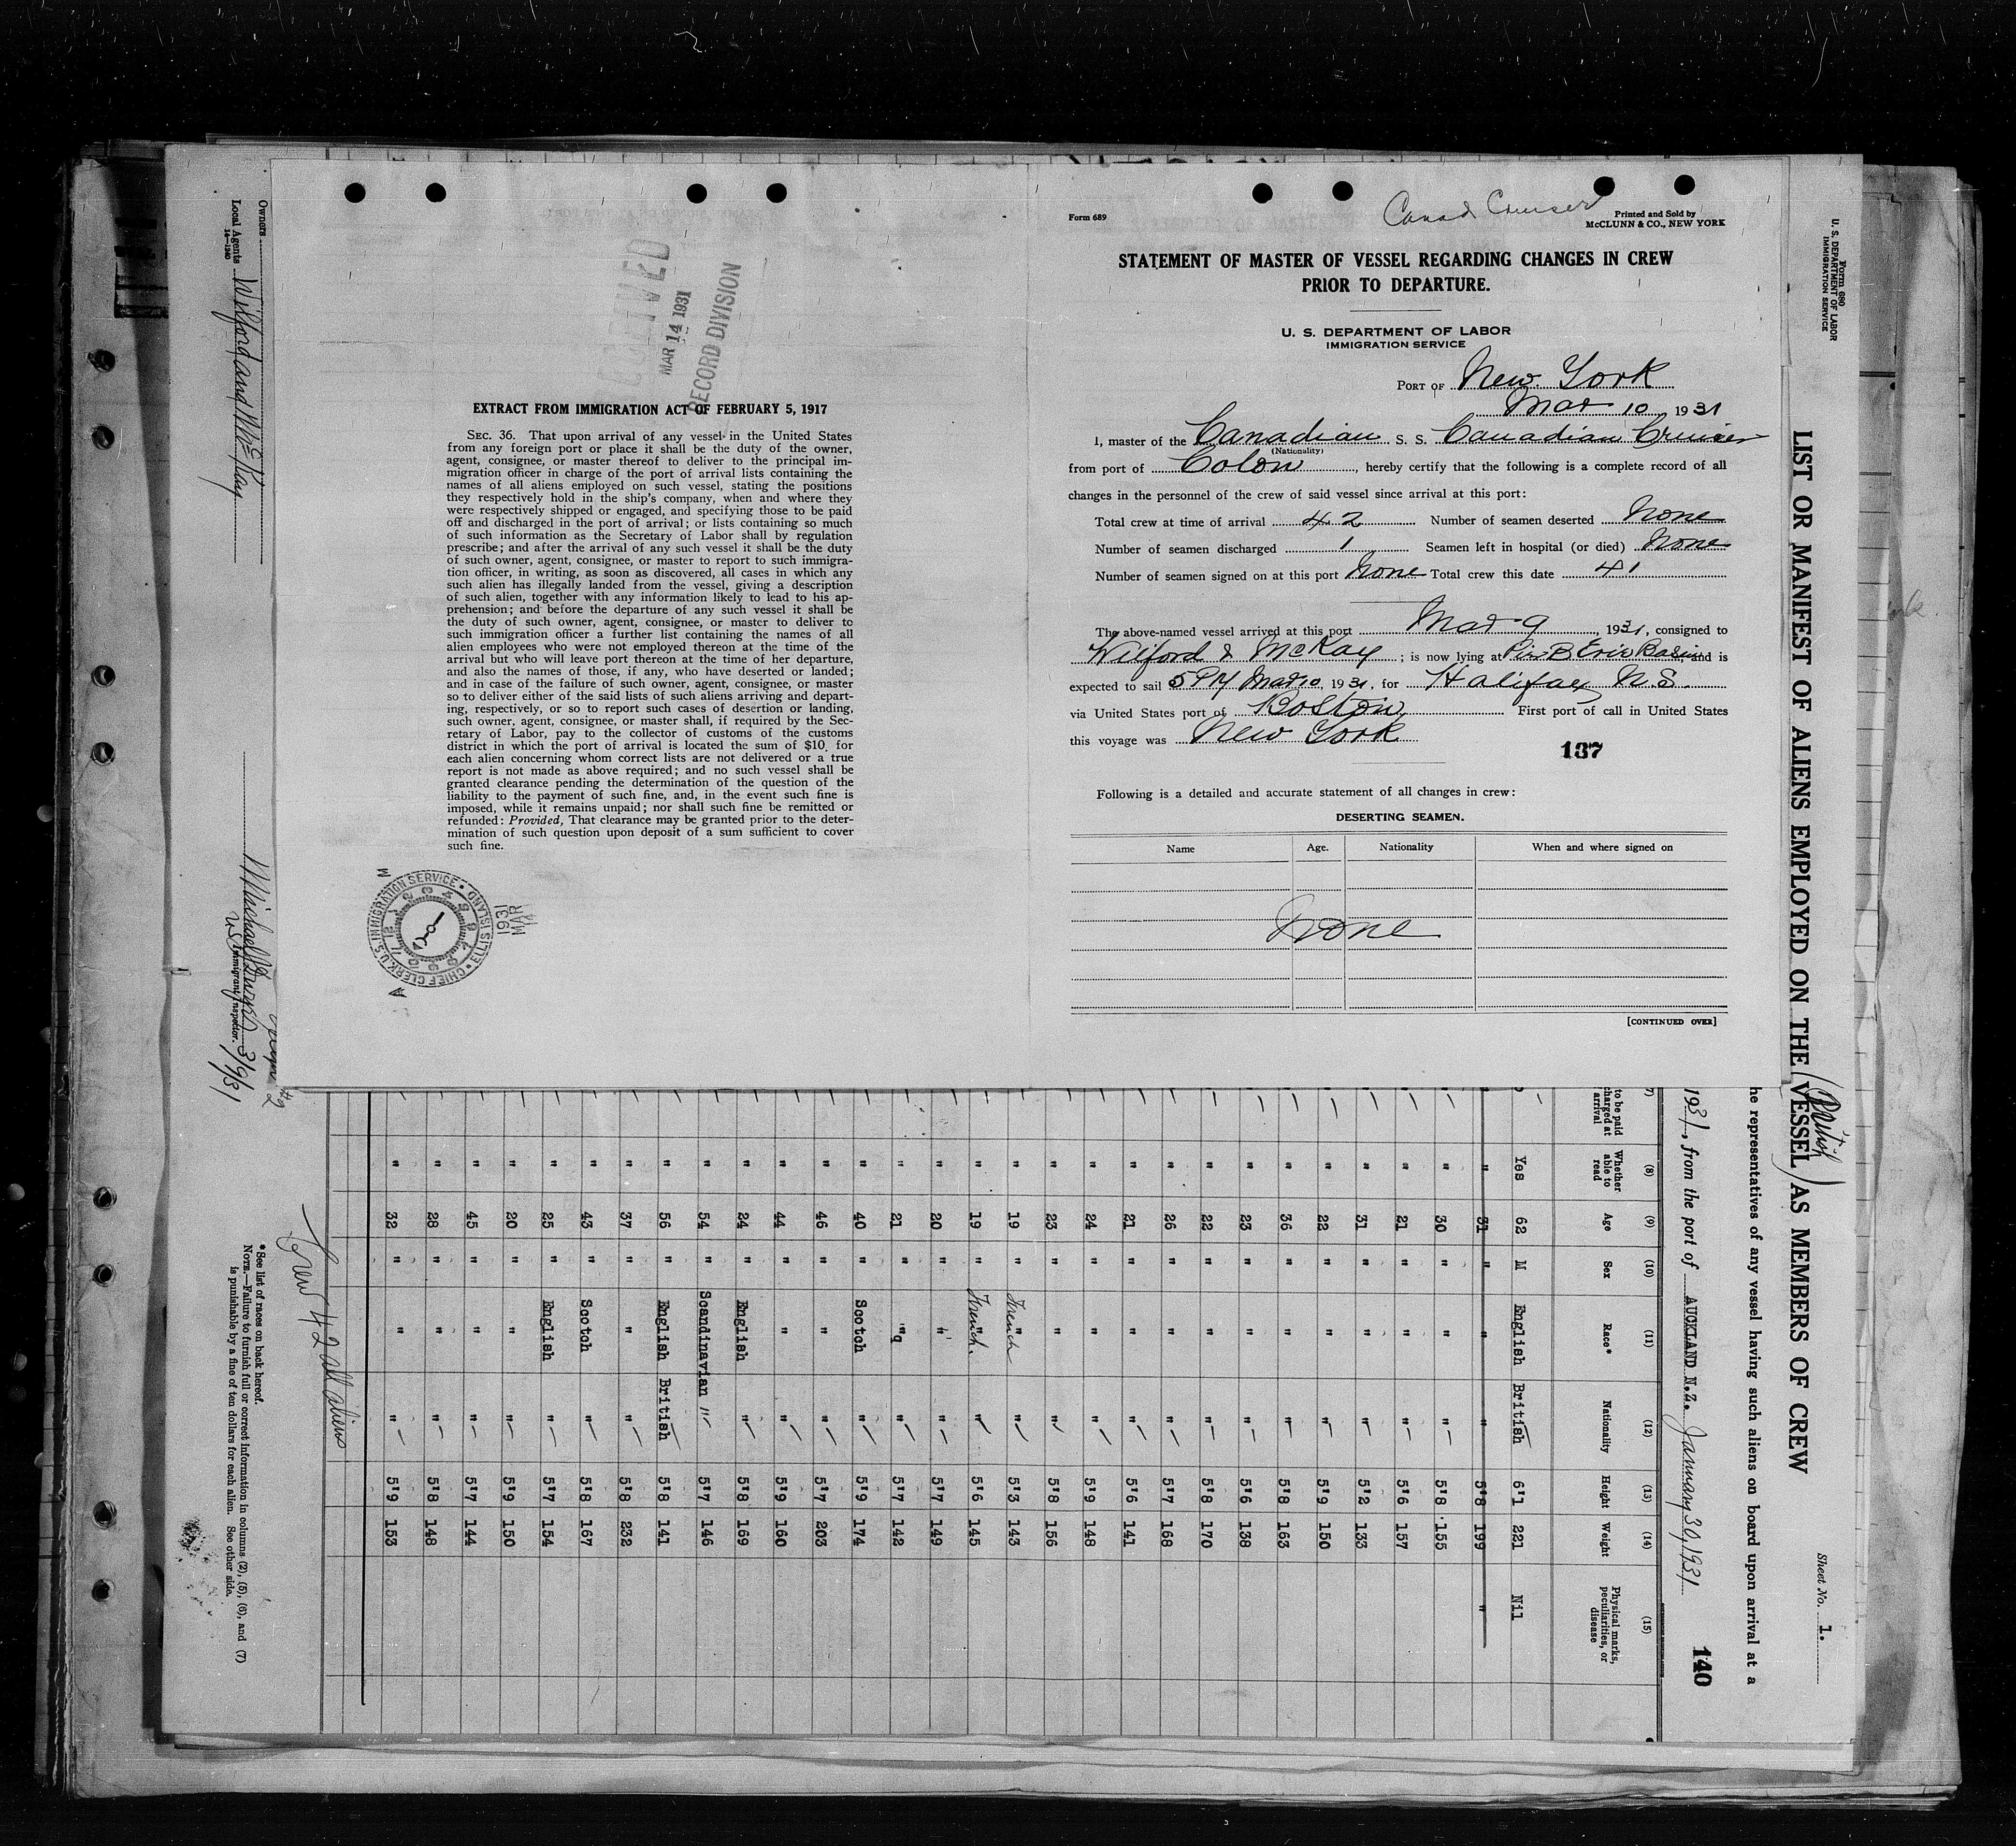 Form 689
Canad Cruiser
Printed and Sold by
McCLUNN & CO., NEW YORK
STATEMENT OF MASTER OF VESSEL REGARDING CHANGES IN CREW
PRIOR TO DEPARTURE.
U. S. DEPARTMENT OF LABOR
IMMIGRATION SERVICE
PORT OF New York
Mar 10 1931
I, master of the Canadian S. S. Canadian Cruiser
(Nationality)
from port of Colon, hereby certify that the following is a complete record of all
changes in the personnel of the crew of said vessel since arrival at this port:
Total crew at time of arrival 42 Number of seamen deserted None
Number of seamen discharged 1 Seamen left in hospital (or died) None
Number of seamen signed on at this port None Total crew this date 41
The above-named vessel arrived at this port Mar 9, 1931, consigned to
Wilford & McKay; is now lying at Pier B Erie Basin and is
expected to sail 5 PM Mar 10, 1931, for Halifax N.S.
via United States port of Boston First port of call in United States
this voyage was New York
137
Following is a detailed and accurate statement of all changes in crew:
DESERTING SEAMEN.
Name Age. Nationality When and where signed on
None
[CONTINUED OVER]
RECEIVED
MAR 14 1931
RECORD DIVISION
EXTRACT FROM IMMIGRATION ACT OF FEBRUARY 5, 1917
SEC. 36. That upon arrival of any vessel in the United States
from any foreign port or place it shall be the duty of the owner,
agent, consignee, or master thereof to deliver to the principal im-
migration officer in charge of the port of arrival lists containing the
names of all aliens employed on such vessel, stating the positions
they respectively hold in the ship's company, when and where they
were respectively shipped or engaged, and specifying those to be paid
off and discharged in the port of arrival; or lists containing so much
of such information as the Secretary of Labor shall by regulation
prescribe; and after the arrival of any such vessel it shall be the duty
of such owner, agent, consignee, or master to report to such immigra-
tion officer, in writing, as soon as discovered, all cases in which any
such alien has illegally landed from the vessel, giving a description
of such alien, together with any information likely to lead to his ap-
prehension; and before the departure of any such vessel it shall be
the duty of such owner, agent, consignee, or master to deliver to
such immigration officer a further list containing the names of all
alien employees who were not employed thereon at the time of the
arrival but who will leave port thereon at the time of her departure,
and also the names of those, if any, who have deserted or landed;
and in case of the failure of such owner, agent, consignee, or master
so to deliver either of the said lists of such aliens arriving and depart-
ing, respectively, or so to report such cases of desertion or landing,
such owner, agent, consignee, or master shall, if required by the Sec-
retary of Labor, pay to the collector of customs of the customs
district in which the port of arrival is located the sum of $10 for
each alien concerning whom correct lists are not delivered or a true
report is not made as above required; and no such vessel shall be
granted clearance pending the determination of the question of the
liability to the payment of such fine, and, in the event such fine is
imposed, while it remains unpaid; nor shall such fine be remitted or
refunded: Provided, That clearance may be granted prior to the deter-
mination of such question upon deposit of a sum sufficient to cover
such fine.
CHIEF CLERK, U.S. IMMIGRATION SERVICE • ELLIS ISLAND
1931
MAR
14
Form 680
U. S. DEPARTMENT OF LABOR
IMMIGRATION SERVICE
Sheet No. 1.
LIST OR MANIFEST OF ALIENS EMPLOYED ON THE (British VESSEL) AS MEMBERS OF CREW
he representatives of any vessel having such aliens on board upon arrival at a
1931, from the port of AUCKLAND N.Z. January 30, 1931
140
(8) (9) (10) (11) (12) (13) (14) (15)
to be paid charged at arrival
Whether able to read Age Sex Race* Nationality Height Weight Physical marks, peculiarities, or disease
Yes 62 M English British 6'1 221 Nil
" 31 " " " 5'8 199 "
" 30 " " " 5'8 155
" 21 " " " 5'6 157
" 31 " " " 5'2 133
" 22 " " " 5'9 150
" 36 " " " 5'8 163
" 23 " " " 5'6 138
" 22 " " " 5'8 170
" 26 " " " 5'7 168
" 21 " " " 5'6 141
" 24 " " " 5'9 148
" 23 " " " 5'8 156
" 19 " French " 5'3 143
" 19 " French. " 5'6 145
" 20 " " " 5'7 149
" 21 " " " 5'7 142
" 40 " Scotch " 5'9 174
" 46 " " " 5'7 203
" 44 " " " 5'9 160
" 24 " English " 5'8 169
" 54 " Scandinavian " 5'7 146
" 56 " English British 5'8 141
" 37 " " " 5'8 232
" 43 " Scotch " 5'8 167
" 25 " English " 5'7 154
" 20 " " " 5'9 150
" 45 " " " 5'7 144
" 28 " " " 5'8 148
" 32 " " " 5'9 153
Crew 42 all aliens
*See list of races on back hereof.
NOTE.—Failure to furnish full or correct information in columns (2), (5), (6), and (7)
is punishable by a fine of ten dollars for each alien. See other side.
Owners
Local Agents Wilford and McKay
14—1240
Immigrant Inspector. 3/9/31